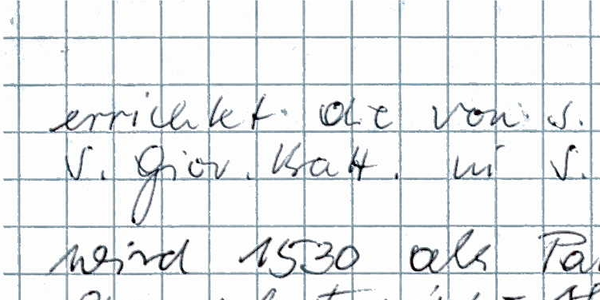 errichtet. die von S.
S. Giov. Batt. in S.
wird 1530 als Pa